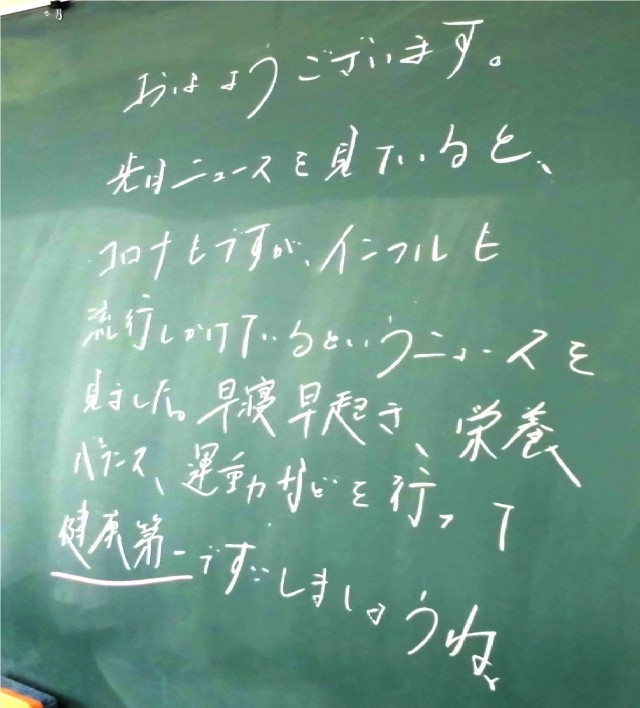 おはようございます。
先日ニュースを見ていると、
コロナもですが、インフルも
流行しかけているというニュースを
見ました。早寝早起き、栄養
バランス、運動などを行って
健康第一ですごしましょうね。